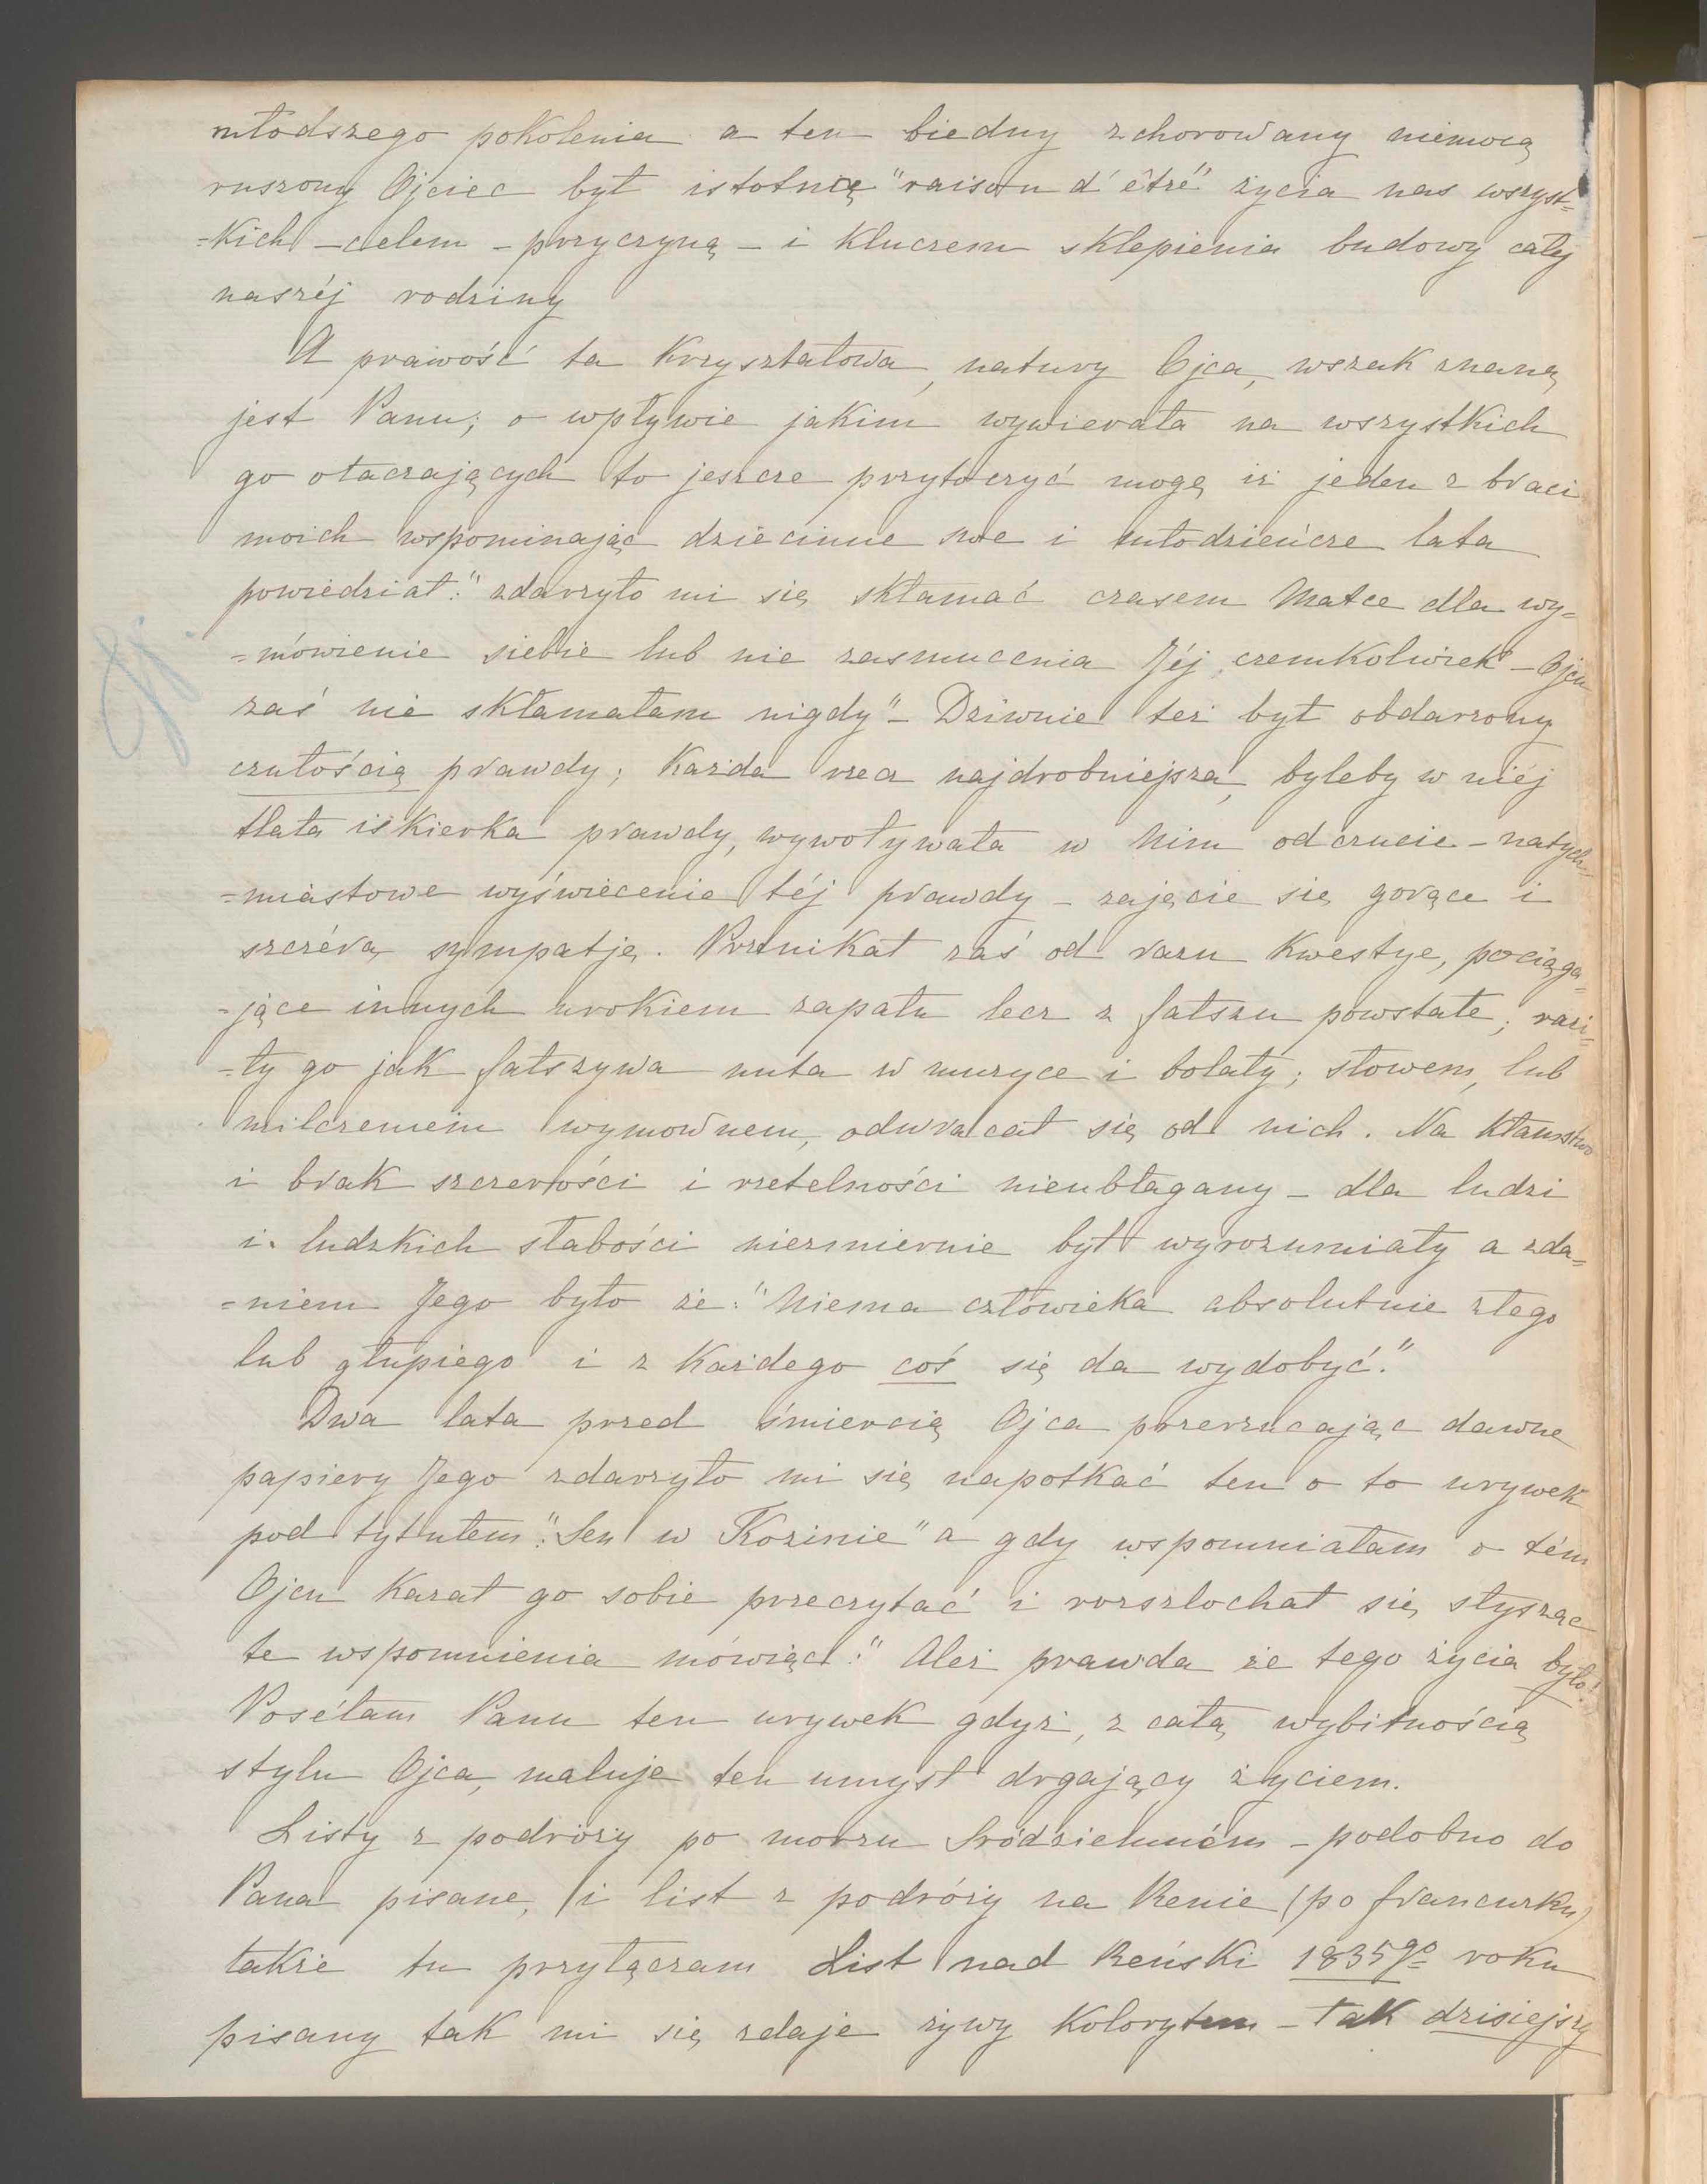 młodszego pokolenia a ten biedny zchorowany niemocą
ruszony Ojciec był istotnie "raison d'être" życia nas wszyst=
=kich – celem – przyczyną – i kluczem sklepienia budowy cały
naszéj rodziny
A prawość ta kryształowa, natury Ojca, wszak znaną
jest Panu; o wpływie jakim wywierała na wszystkich
go otaczających to jeszcze przytoczyć mogę iż jeden z braci
moich wspominając dziecinne swe i młodzieńcze lata
powiedział: "zdarzyło mi się skłamać czasem Matce dla wy=
=mówienie siebie lub nie zasmucenia Jéj czemkolwiek – Ojcu
zaś nie skłamałam nigdy" – Dziwnie też był obdarzony
czułością prawdy; każda rzecz najdrobniejsza, byleby w niéj
tlała iskierka prawdy, wywoływała w Nim odczucie – natych=
=miastowe wyświecenie téj prawdy – zajęcie się gorące i
szczérą sympatję. Przenikał zaś od razu kwestye, pociąga=
=jące innych urokiem zapału lecz z fałszu powstałe; razi=
=ły go jak fałszywa nuta w muzyce i bolały; słowem, lub
milczeniem wymownem, odwracał się od nich. Na kłamstwo
i brak szczerości i rzetelności nieubłagany – dla ludzi
i ludzkich słabości niezmiernie był wyrozumiały a zda=
=niem Jego było że: "Niema człowieka absolutnie złego
lub głupiego i z każdego coś się da wydobyć."
Dwa lata przed śmiercią Ojca przerzucając dawne
papiery Jego zdarzyło mi się napotkać ten o to urywek
pod tytułem: "Sen w Kozinie" a gdy wspomniałam o tém
Ojcu kazał go sobie przeczytać i rozszlochał się słysząc
te wspomnienia mówiąc: "Ależ prawda że tego życia było!
Poséłam Panu ten urywek gdyż, z całą wybitnością
stylu Ojca, maluje ten umysł drgający życiem.
Listy z podróży po morzu Sródziemném – podobno do
Pana pisane, i list z podróży na Renie (po francusku)
także tu przyłączam List nad Reński 1835go roku
pisany tak mi się zdaje żywy kolorytem – tak dzisiejszy